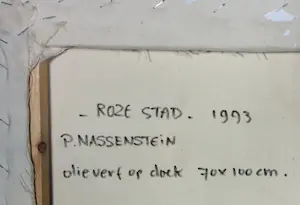 - ROZE STAD. 1993
P. NASSENSTEIN
olieverf op doek 70 x 100 cm.